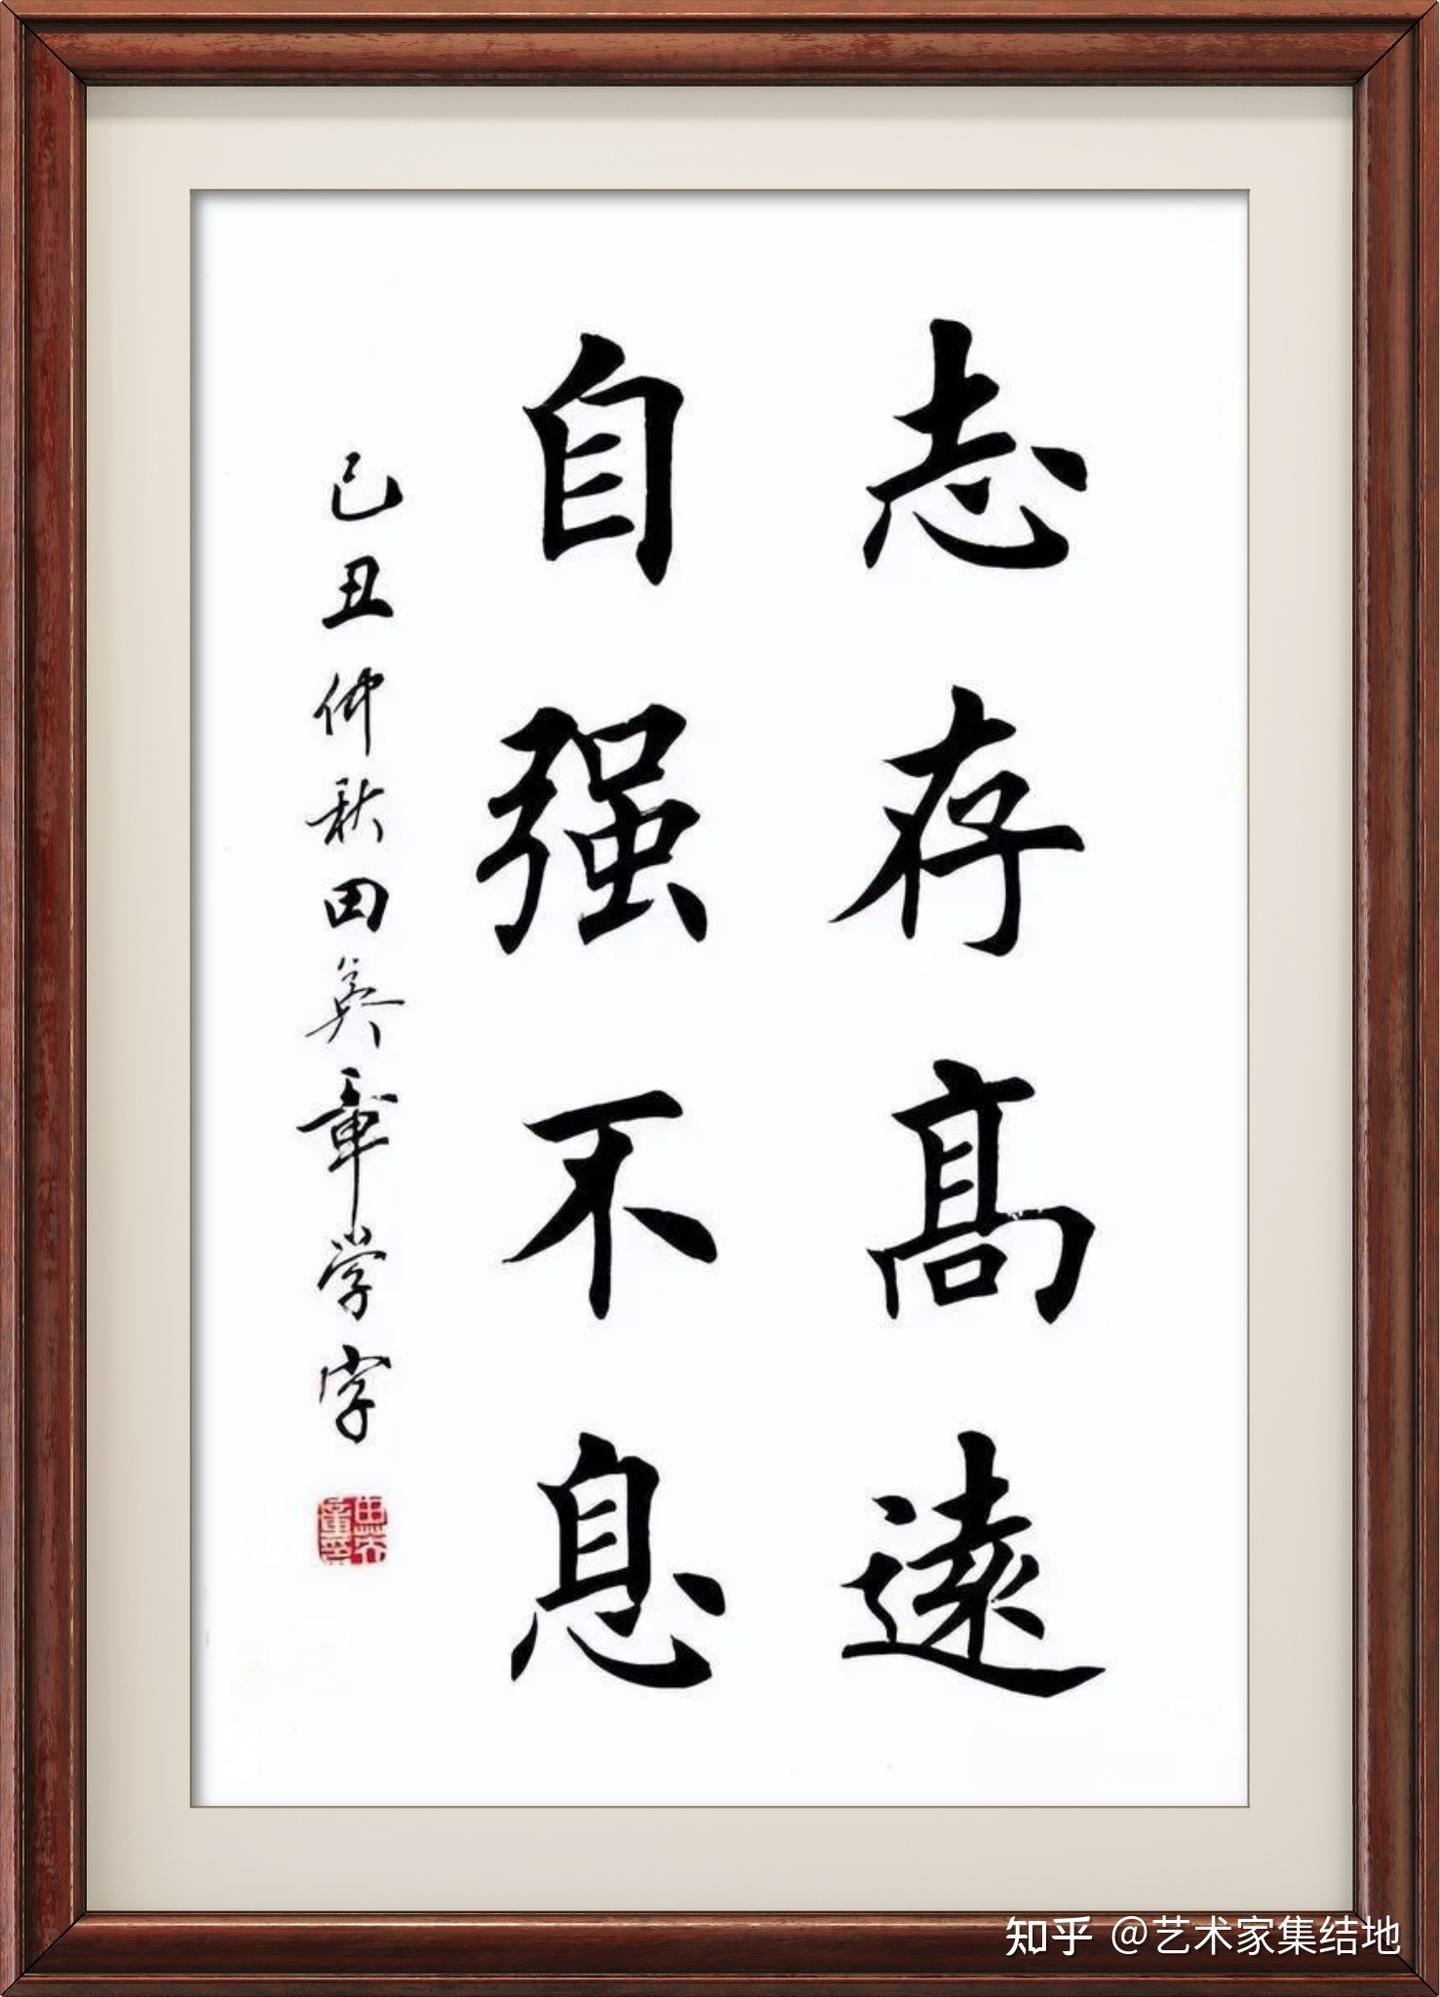 志存髙遠
自强不息
己丑仲秋田英章学字
知乎 @艺术家集结地